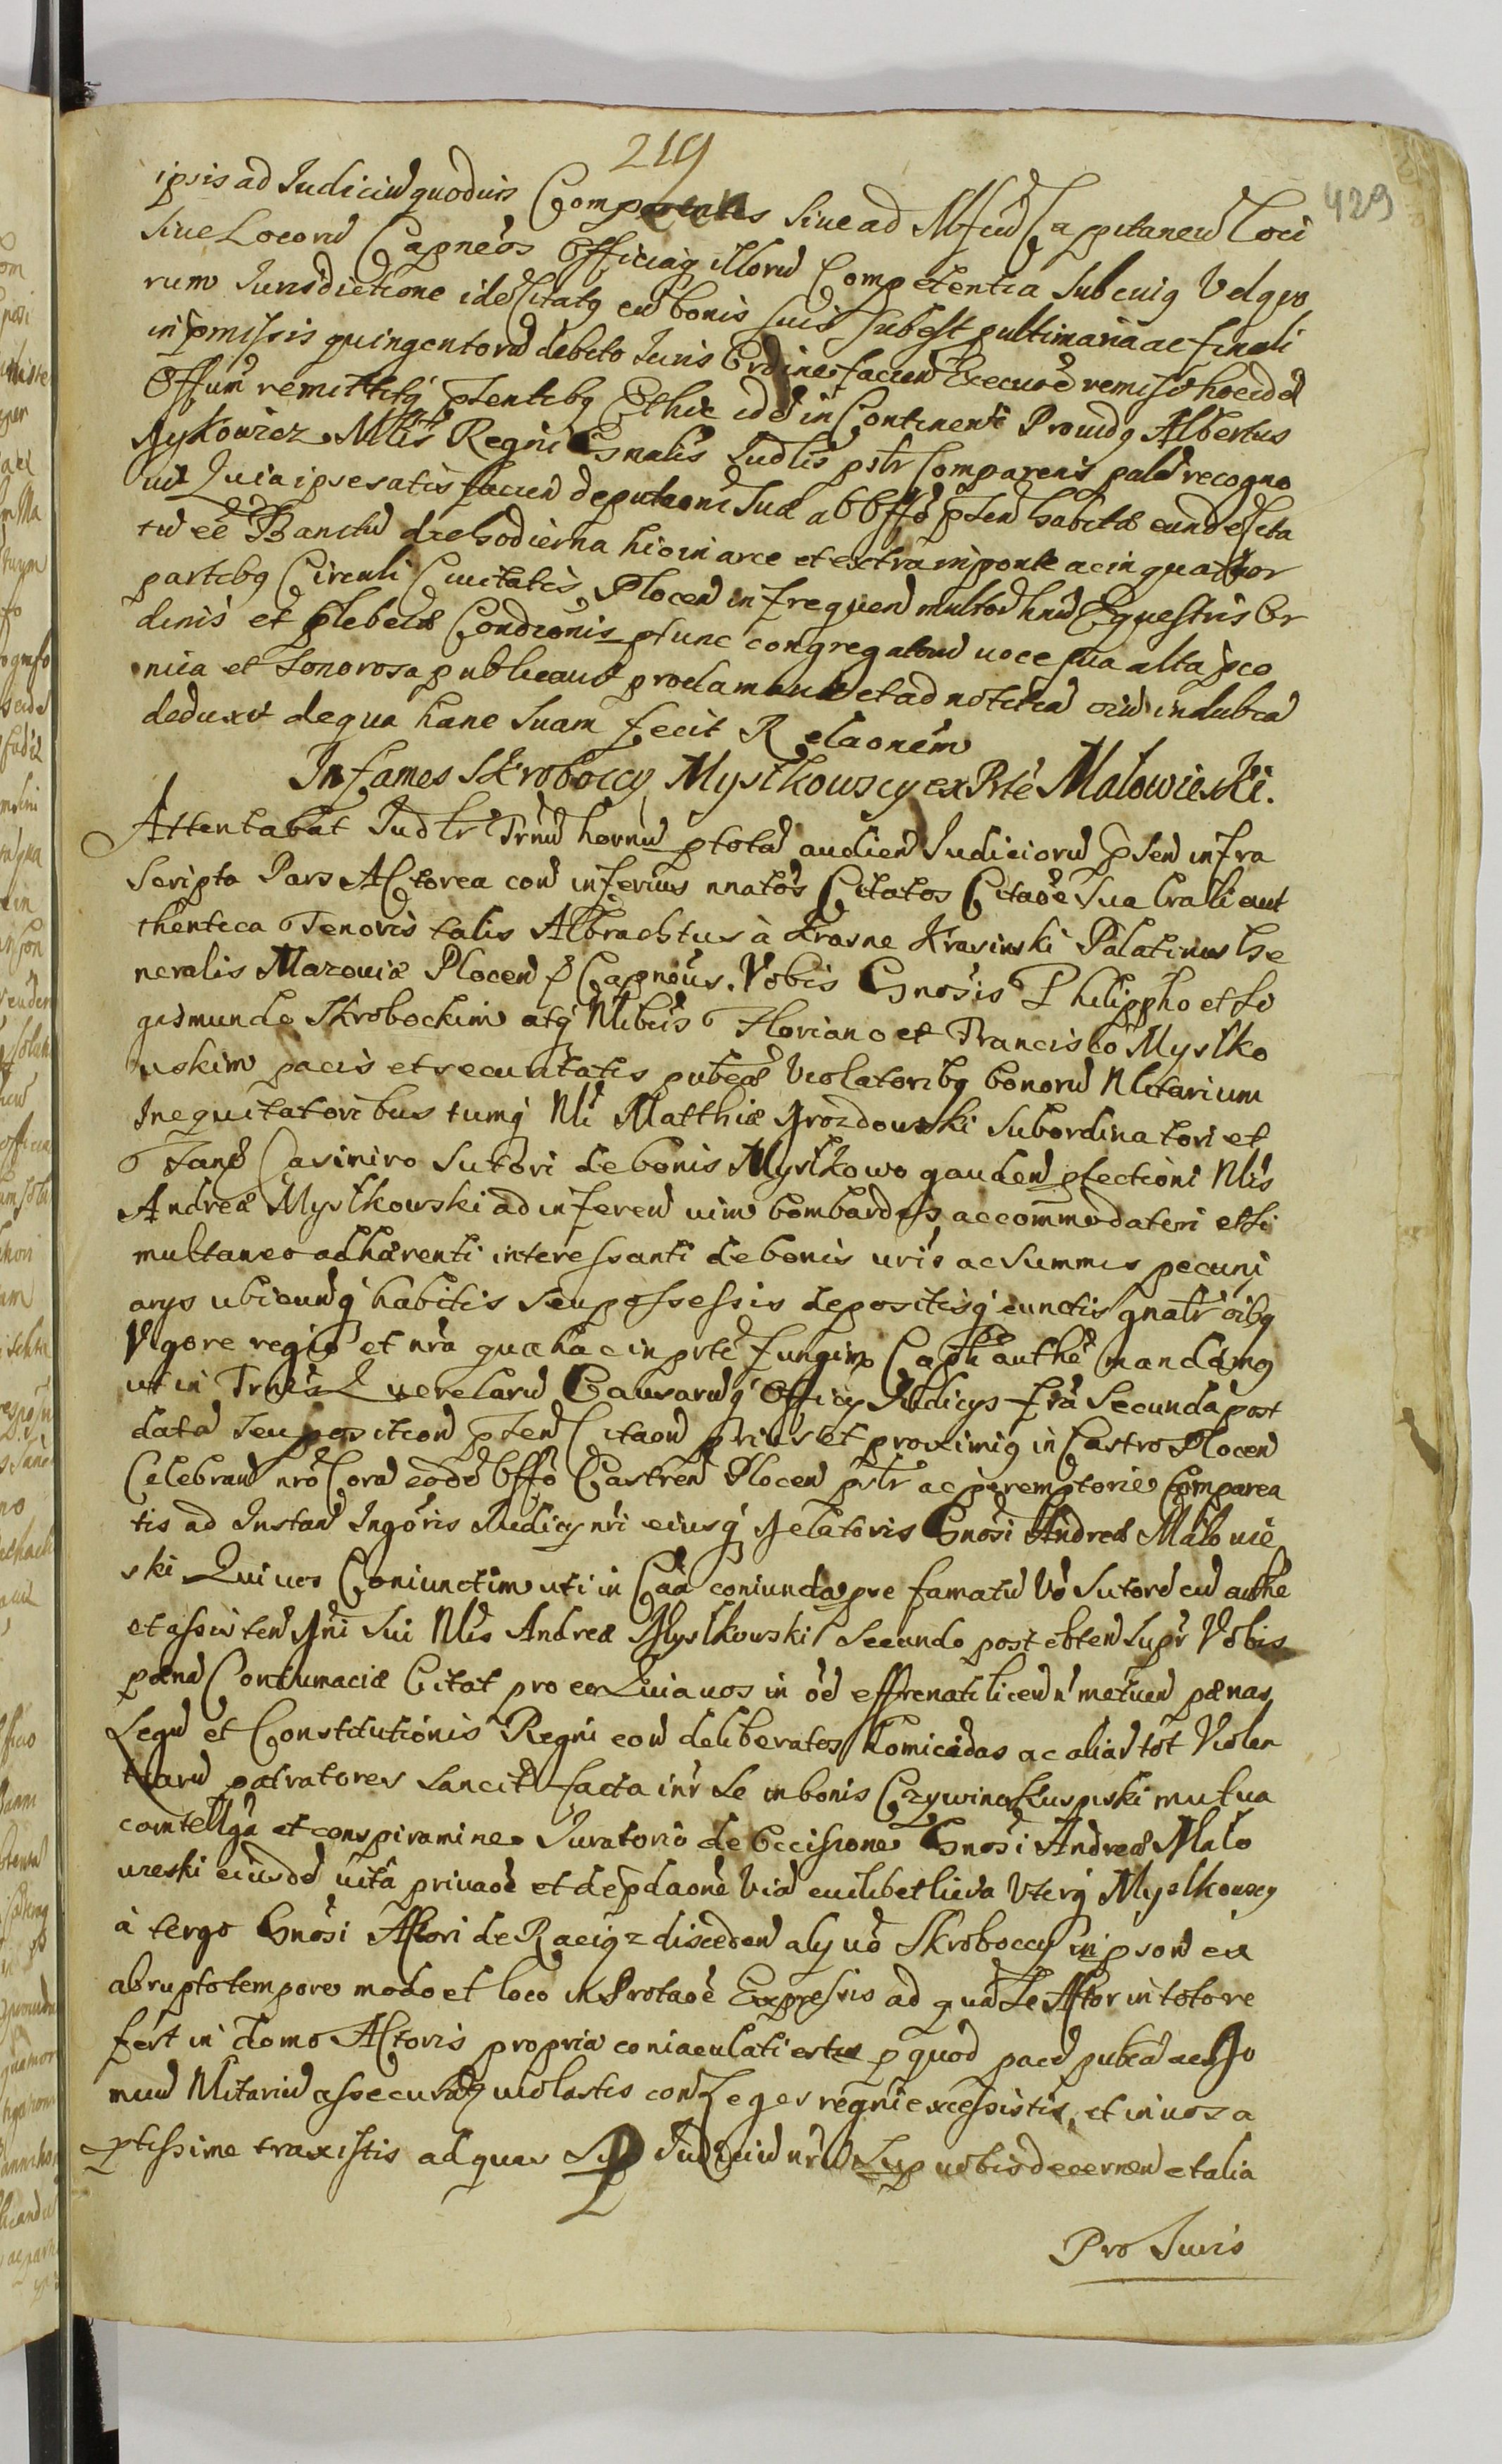 219
429
ipsis ad Judiciũ quoduis Competens siue ad Mfcũ Capitaneũ Loci
siue Locorũ Capneos Officiaq illorũ Competentia Sub cuiq Vel quo
rum Jurisdictione ide Citatq cũ bonis suis subest pultimaria ac finali
in pmissis quingentorũ debito Juris Ordine faciend Execuoe remisit hocid
Offum remittitq ptentibq Et hic ide in Continenti Prouidq Albertus
Rykowicz Mtis Regni Gnalis Judlis pstr Comparens palã recogno
uit Quia ipse satis faciend deputaoni Suæ ab Offo pten habitæ eunde Cita
tũ eẽ Banitũ die hodierna hic in arce et extra in ponte ac in quattuor
partibq Circuli Ciuitatis Plocen in frequen multorũ hnũ Equestris Or
dinis et plebeiæ Condionis ptunc congregatorũ uoce sua alta pco
nica et sonorosa publicauit proclamauit et ad notitiã oiũ indubiã
deduxit de qua hanc suam fecit Relaonem
Infames Skroboccy Mystkowscy ex Pte Malowieski.
Attentabat Judlr Trnũ hornũ p totã audien Judiciorũ pten infra
scripta Pars Actorea con inferius nnatos Citatos Citaoe sua lrali aut
thentica Tenoris talis Albrachtus à Krasne Krasinski Palatinus Ge
neralis Mazouiæ Plocen p Capneus. Vobis Gnosis Philippho et Si
gismundo Skrobockim atq Nlibus Floriano et Francisco Mystko
wskim pacis et securitatis pubcæ Violatoribq bonorũ Nlitarium
Inequitatoribus tumq Nli Matthiæ Grozdowski Subordinatori et
Fano Casimiro Sutori de bonis Mystkowo gauden ptectioni Nlis
Andreæ Mystkowski ad inferen uim bombardas accommodatori et si
multaneo adhærenti interessanti de bonis uris ac summis pecuni
arys ubicunq habitis seu possessis depositisq cunctis gnalr oibq
Vigore regia et nra qua hac in prte fungimr Captli authe mandamq
ut in Trnis Querelarũ Causarũq Officy Judicys fra Secunda post
datã seu positionẽ pten Citaon prius et proximiq in Castro Plocen
Celebrand nro Corã eode Offo Castren Plocen pstr ac peremptorie Comparea
tis ad Instan Ingoris Judicy nri eiusq delatoris Gnosi Andreæ Malowie
ski Qui uos Coniunctim uti in Caa coniuncta prefamatũ Vo Sutorẽ cũ authe
et assisten Dni Sui Nlis Andreæ Mystkowski Secundo post obten supr Vobis
pænã Contumaciæ Citat pro eo Quia uos in oe effrenati licen n metuen pænas
Legũ et Constitutionis Regni con deliberatos homicidas ac aliarũ tot Violen
tiarũ patratores sancit facta inr se in bonis Czywiny Kuspiski mutua
comtellga et conspiramine Juratorio de Occisione Gnosi Andreæ Malo
wieski eiusde uita priuaoe et depdaone Via cuilibet licita Vterq Mystkowscy
à tergo Gnosi Actori de Raciqz discedend aly uo Skroboccy in pson ex
abrupto tempore modo et loco in Protaoe Expressis ad quã Se Actor in toto re
fert in domo Actoris propria coniaculati estis p quod pacẽ pubcã ac do
mũ Nlitariũ assecuratã uiolastis con Leges regni excessistis, et in uos a
ptissime traxistis ad quas Sup Judiciũ nrũ Sup uobis decernen et alia
Pro Juris